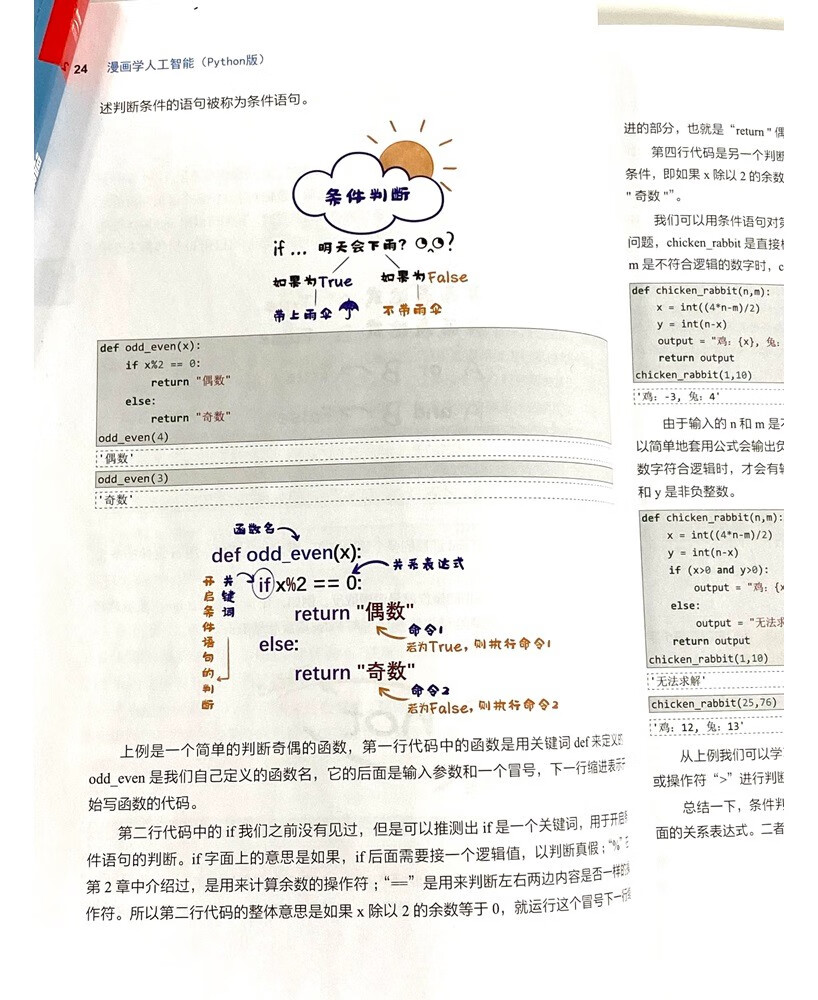 24 漫画学人工智能（Python版）
述判断条件的语句被称为条件语句。
条件判断
if ... 明天会下雨？
如果为True 如果为False
带上雨伞 不带雨伞
def odd_even(x):
if x%2 == 0:
return "偶数"
else:
return "奇数"
odd_even(4)
'偶数'
odd_even(3)
'奇数'
函数名
def odd_even(x):
关系表达式
关键词
开启条件语句的判断
if x%2 == 0:
return "偶数"
命令1
若为True，则执行命令1
else:
return "奇数"
命令2
若为False，则执行命令2
上例是一个简单的判断奇偶的函数，第一行代码中的函数是用关键词 def 来定义的
odd_even 是我们自己定义的函数名，它的后面是输入参数和一个冒号，下一行缩进表示
始写函数的代码。
第二行代码中的 if 我们之前没有见过，但是可以推测出 if 是一个关键词，用于开启
件语句的判断。if 字面上的意思是如果，if 后面需要接一个逻辑值，以判断真假；“%”
第 2 章中介绍过，是用来计算余数的操作符；“==”是用来判断左右两边内容是否一样的
作符。所以第二行代码的整体意思是如果 x 除以 2 的余数等于 0，就运行这个冒号下一行
进的部分，也就是“return "偶
第四行代码是另一个判断
条件，即如果 x 除以 2 的余数
"奇数"”。
我们可以用条件语句对
问题，chicken_rabbit 是直接
m 是不符合逻辑的数字时，c
def chicken_rabbit(n,m):
x = int((4*n-m)/2)
y = int(n-x)
output = "鸡: {x}, 兔:
return output
chicken_rabbit(1,10)
'鸡: -3, 兔: 4'
由于输入的 n 和 m 是
以简单地套用公式会输出负
数字符合逻辑时，才会有
和 y 是非负整数。
def chicken_rabbit(n,m):
x = int((4*n-m)/2)
y = int(n-x)
if (x>0 and y>0):
output = "鸡: {x
else:
output = "无法求
return output
chicken_rabbit(1,10)
'无法求解'
chicken_rabbit(25,76)
'鸡: 12, 兔: 13'
从上例我们可以学
或操作符“>”进行判断
总结一下，条件判
面的关系表达式。二者